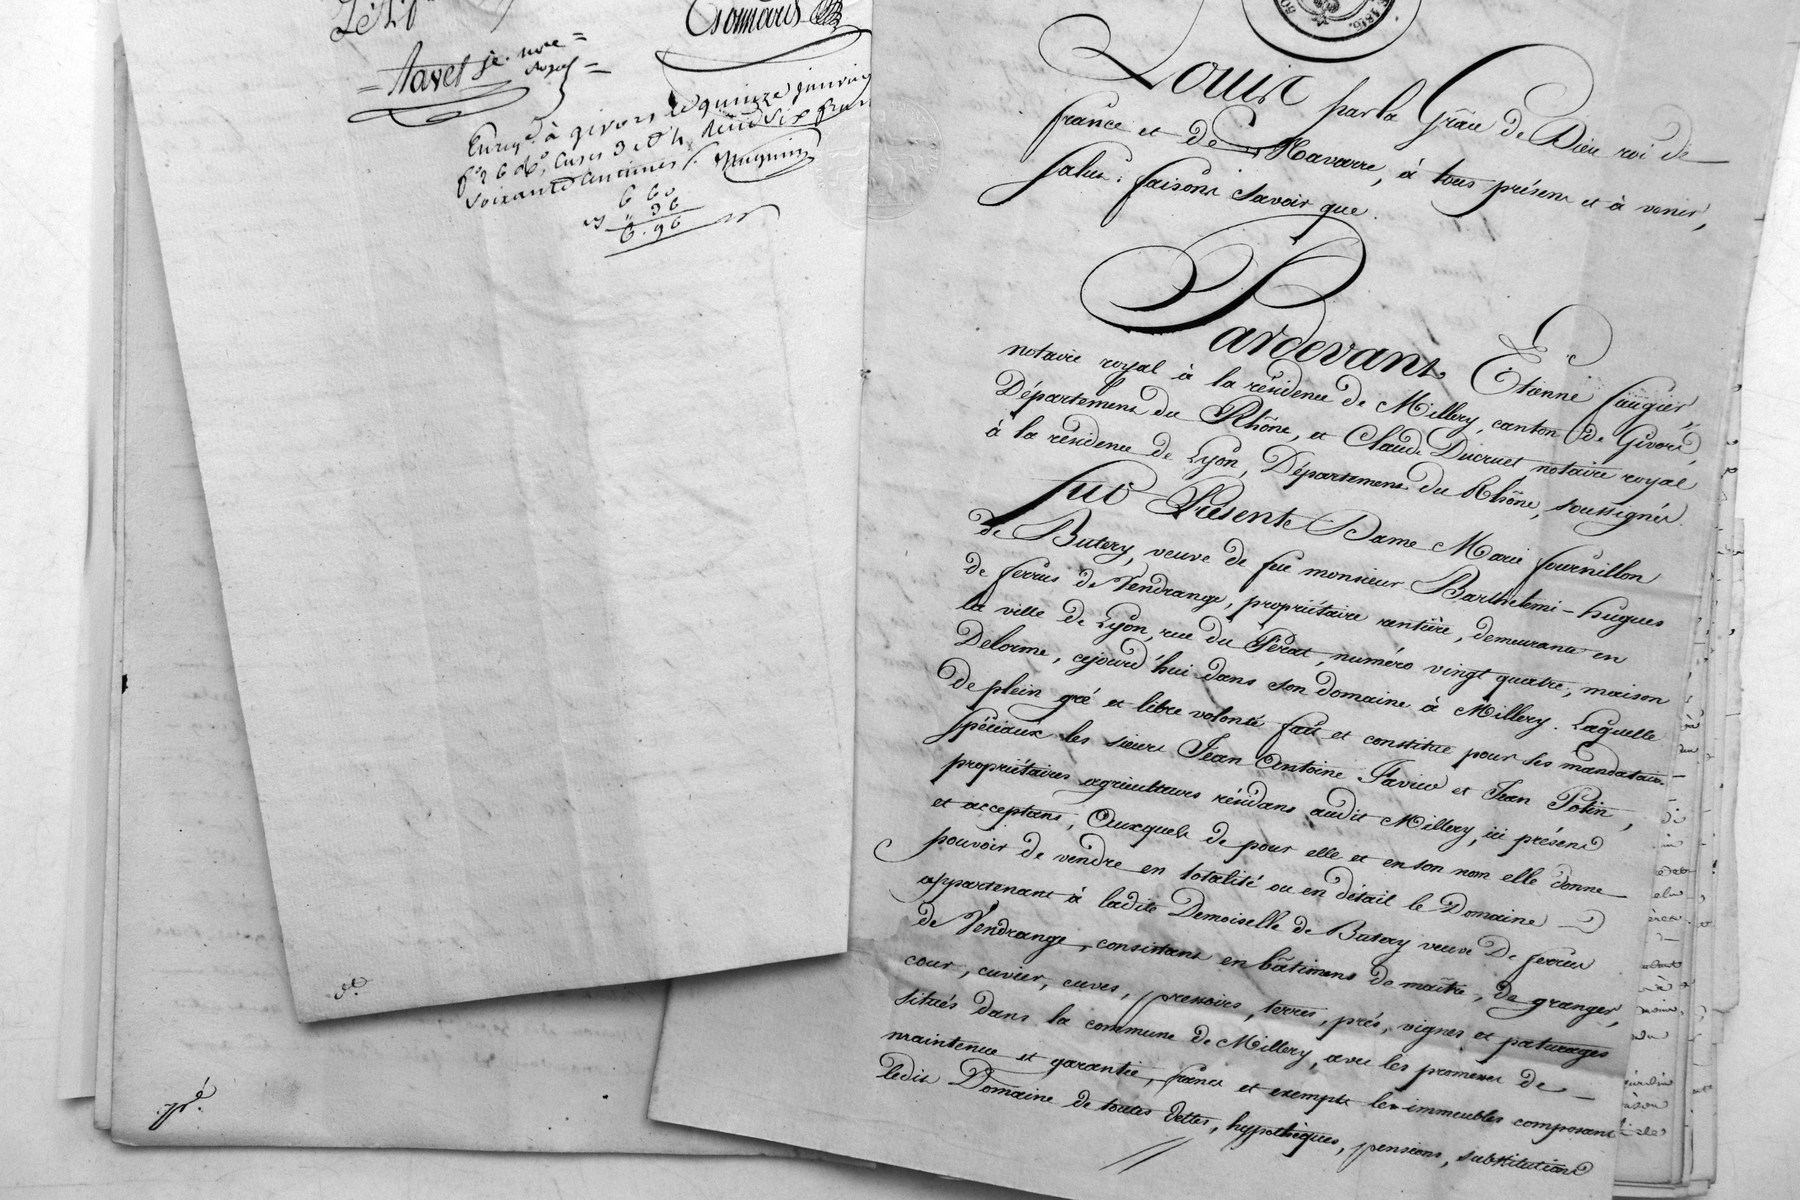 Tavel je. nre
royal
Enregé. à givors le quinze janvier
fo. 26 Vo. Cases 3 et 4, Reçu Six francs
soixante Centimes
6 60
" 96
6.96
Louis par la Grâce de Dieu roi de
france et de Navarre, à tous présens et à venir,
Salut: faisons Savoir que.
Pardevant Etienne faugier
notaire royal à la résidence de Millery, canton de Givors,
Département du Rhône, et Claude Ducruet notaire royal
à la résidence de Lyon, Département du Rhône, soussignés.
fut Présente Dame Marie fournillon
de Butery, veuve de feu monsieur Barthelemi-hugues
de ferrus de Vendrange, propriétaire rentière, demeurant en
la ville de Lyon, rue du Pérat, numéro vingt quatre, maison
Delorme, cejourd'hui dans son domaine à Millery. Laquelle
de plein gré et libre volonté fait et constitue pour ses mandataires
spéciaux les sieurs Jean Antoine et Jean Potin,
propriétaires agriculteurs résidans audit Millery, ici présens
et acceptans, Auxquels de pour elle et en son nom elle donne
pouvoir de vendre en totalité ou en détail le Domaine
appartenant à ladite Demoiselle de Butery veuve De ferrus
de Vendrange, consistant en bâtimens de maître, de granger,
cour, cuvier, cuves, pressoirs, terres, prés, vignes et paturages
situés dans la commune de Millery, avec les promesses de
maintenue et garantie, francs et exempts les immeubles composant
ledit Domaine de toutes dettes, hypothèques, pensions, substitutions